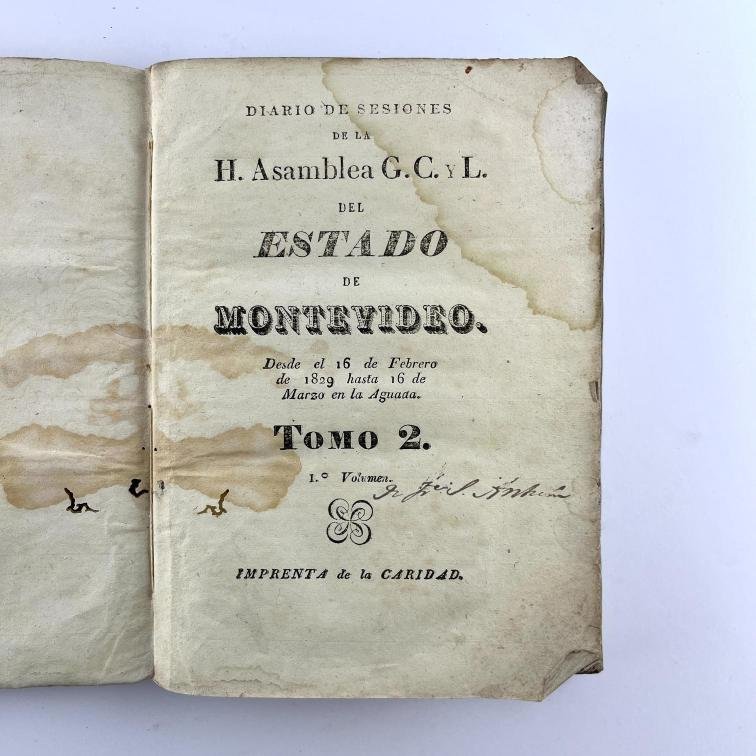 DIARIO DE SESIONES
DE LA
H. Asamblea G. C. Y L.
DEL
ESTADO
DE
MONTEVIDEO.
Desde el 16 de Febrero
de 1829 hasta 16 de
Marzo en la Aguada.
TOMO 2.
1.º Volumen.
IMPRENTA de la CARIDAD.